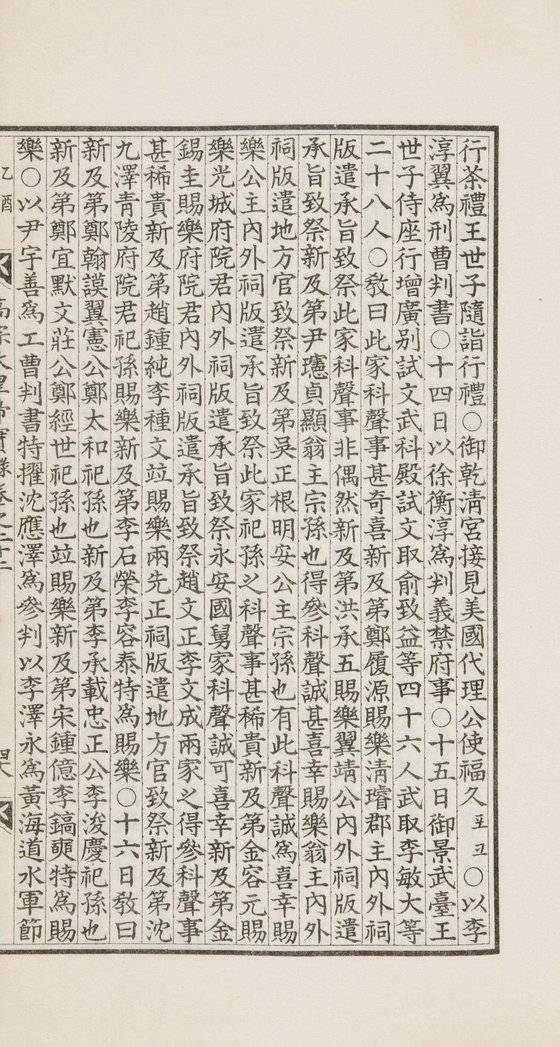 行茶禮王世子隨詣行禮○御乾清宮接見美國代理公使福久포크○以李
淳翼爲刑曹判書○十四日以徐衡淳爲判義禁府事○十五日御景武臺王
世子侍座行增廣别試文武科殿試文取俞致益等四十六人武取李敏大等
二十八人○敎曰此家科聲事甚奇喜新及第鄭履源賜樂淸璿郡主內外祠
版遣承旨致祭此家科聲事非偶然新及第洪承五賜樂翼靖公內外祠版遣
承旨致祭新及第尹瀗貞顯翁主宗孫也得參科聲誠甚喜幸賜樂翁主內外
祠版遣地方官致祭新及第吳正根明安公主宗孫也有此科聲誠爲喜幸賜
樂公主內外祠版遣承旨致祭此家祀孫之科聲事甚稀貴新及第金容元賜
樂光城府院君內外祠版遣承旨致祭永安國舅家科聲誠可喜幸新及第金
錫圭賜樂府院君內外祠版遣承旨致祭趙文正李文成兩家之得參科聲事
甚稀貴新及第趙鍾純李種文竝賜樂兩先正祠版遣地方官致祭新及第沈
九澤靑陵府院君祀孫賜樂新及第李石榮李容泰特爲賜樂○十六日敎曰
新及第鄭翰謨翼憲公鄭太和祀孫也新及第李承載忠正公李浚慶祀孫也
新及第鄭宜默文莊公鄭經世祀孫也竝賜樂新及第宋鍾億李鎬奭特爲賜
樂○以尹宇善爲工曹判書特擢沈應澤爲參判以李澤永爲黃海道水軍節
乙酉